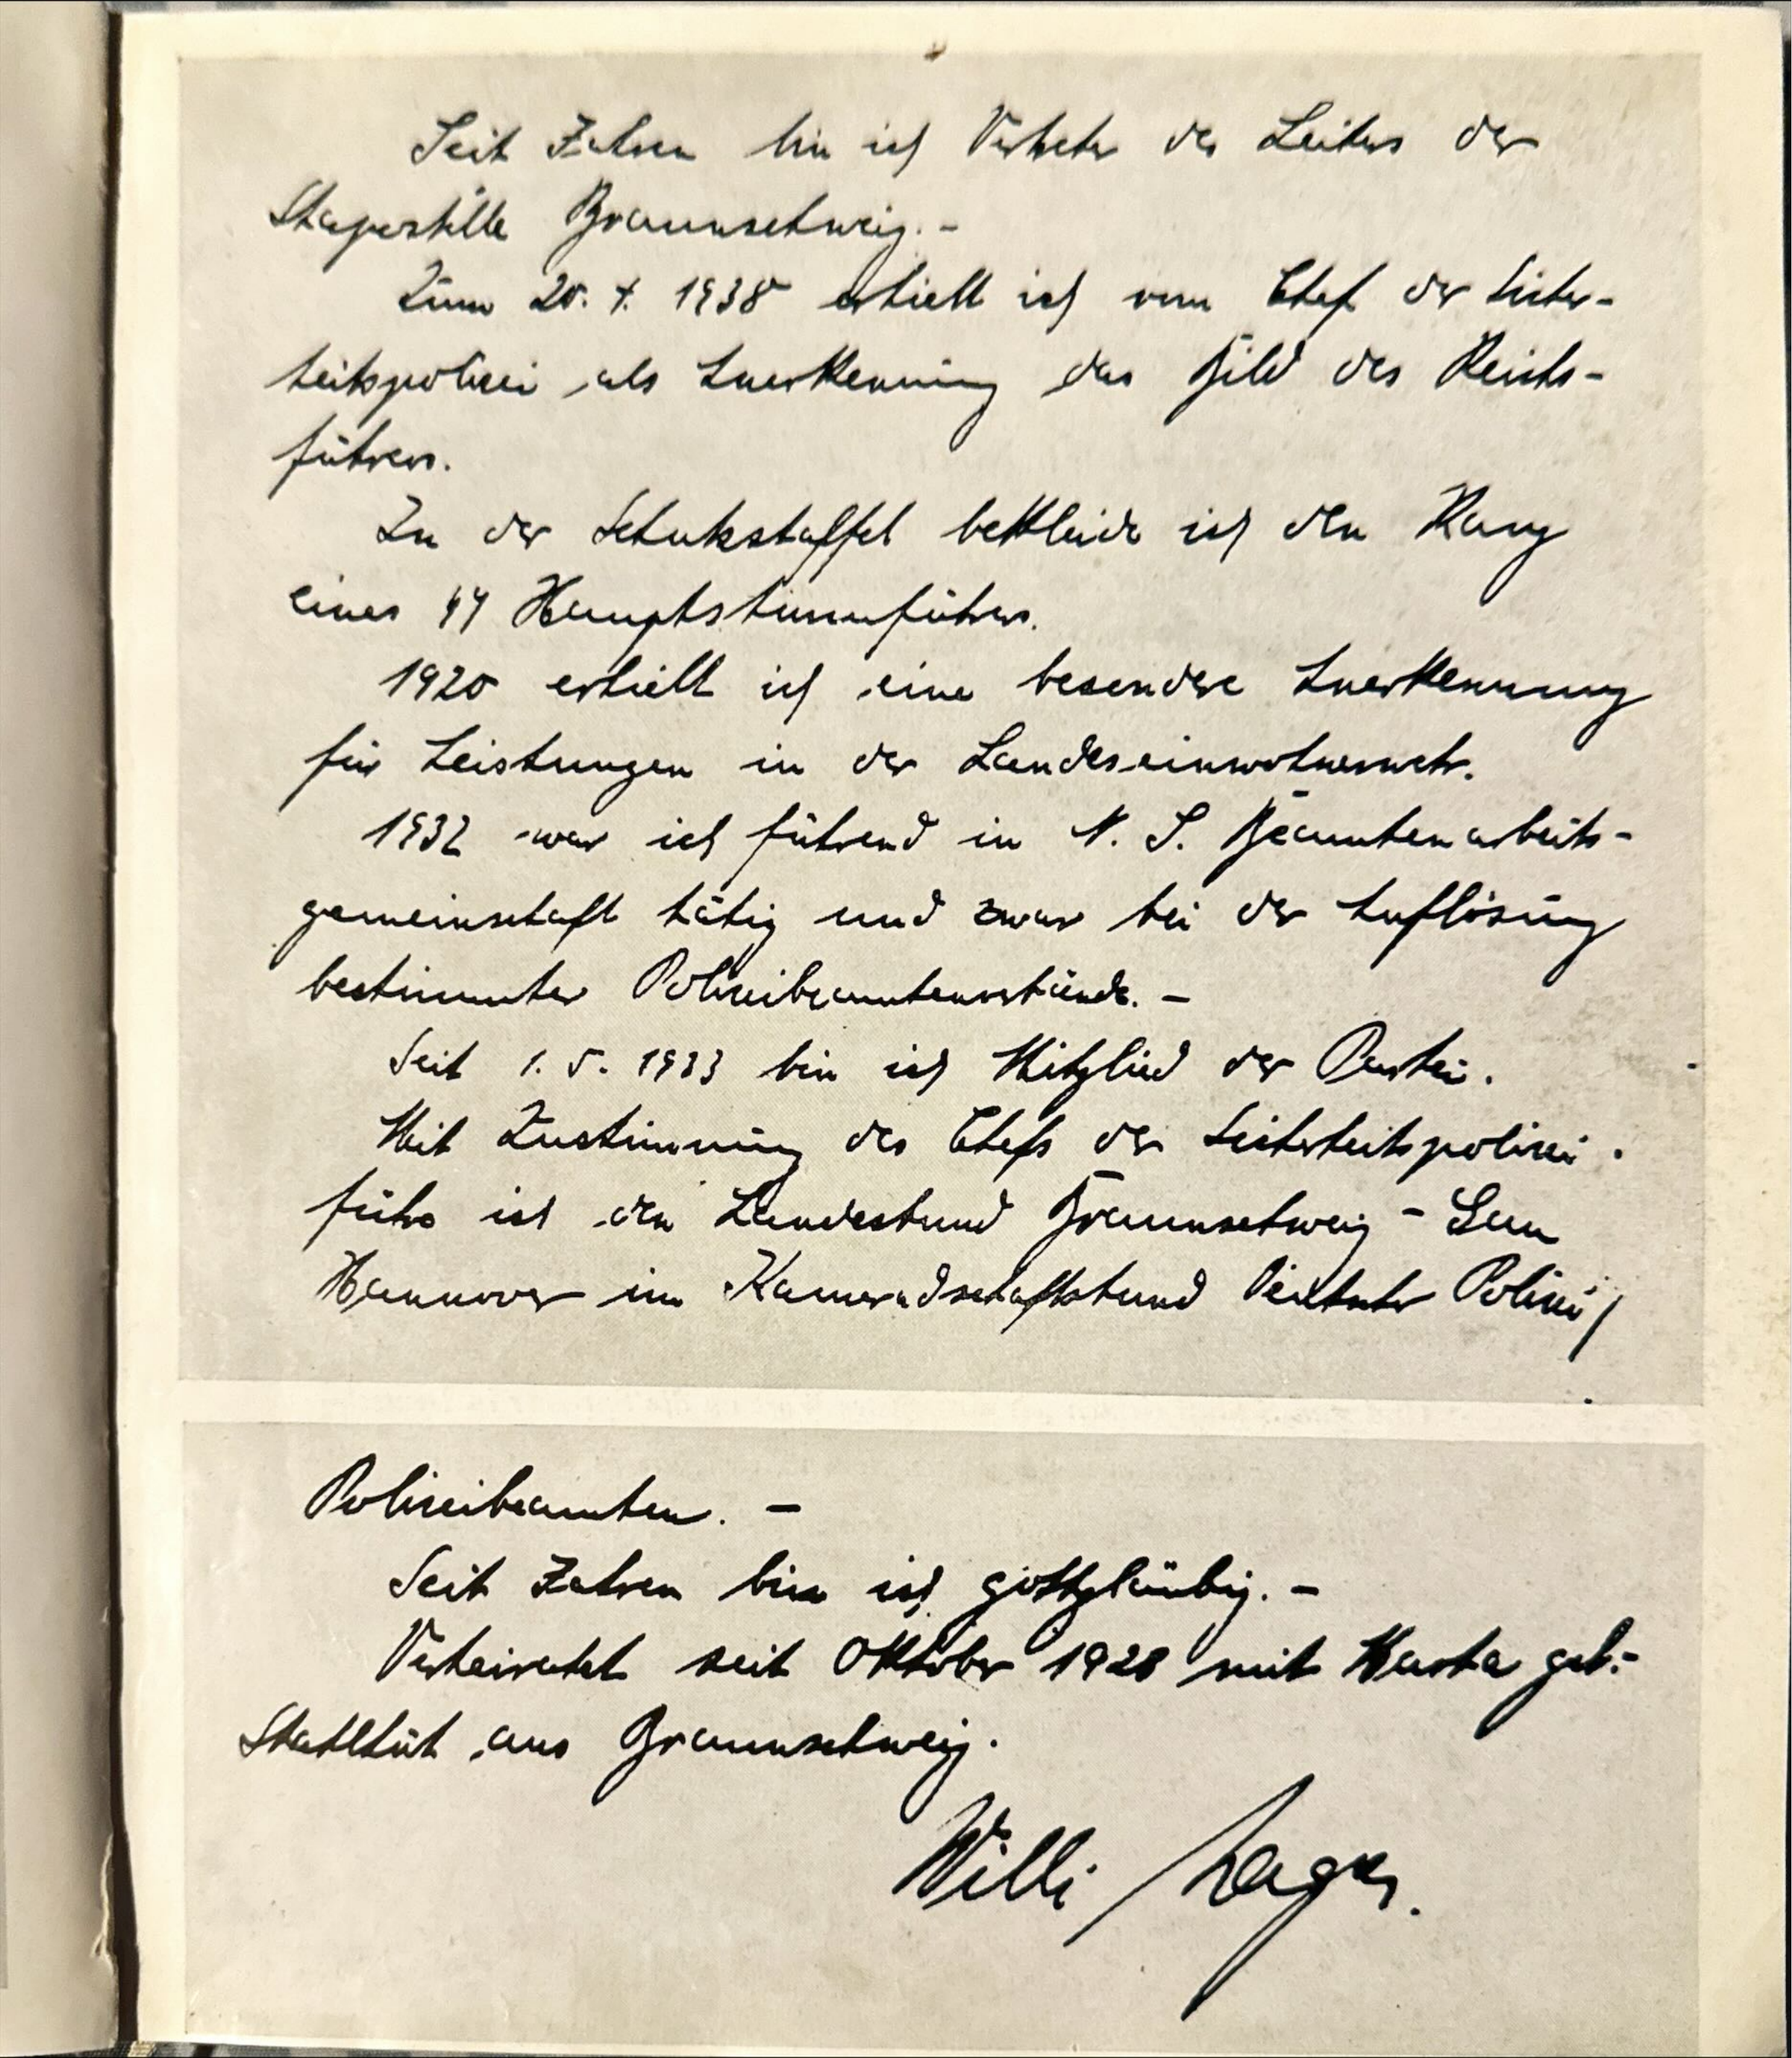 Seit Jahren bin ich Vertreter des Leiters der
Stapostelle Braunschweig. -
Zum 20. 4. 1938 erhielt ich vom Chef der Sicher-
heitspolizei als Anerkennung das Bild des Reichs-
führers.
In der Schutzstaffel bekleide ich den Rang
eines SS Hauptsturmführers.
1920 erhielt ich eine besondere Anerkennung
für Leistungen in der Landeseinwohnerwehr.
1932 war ich führend in N. S. Beamtenarbeits-
gemeinschaft tätig und zwar bei der Auflösung
bestimmter Polizeibeamtenverbände. -
Seit 1. 5. 1933 bin ich Mitglied der Partei.
Mit Zustimmung des Chefs der Sicherheitspolizei
führe ich den Landesbund Braunschweig - Gau
Hannover im Kameradschaftsbund Deutscher Polizei/
Polizeibeamten. -
Seit Jahren bin ich gottgläubig. -
Verheiratet seit Oktober 1928 mit Marta geb.-
aus Braunschweig.
Willi